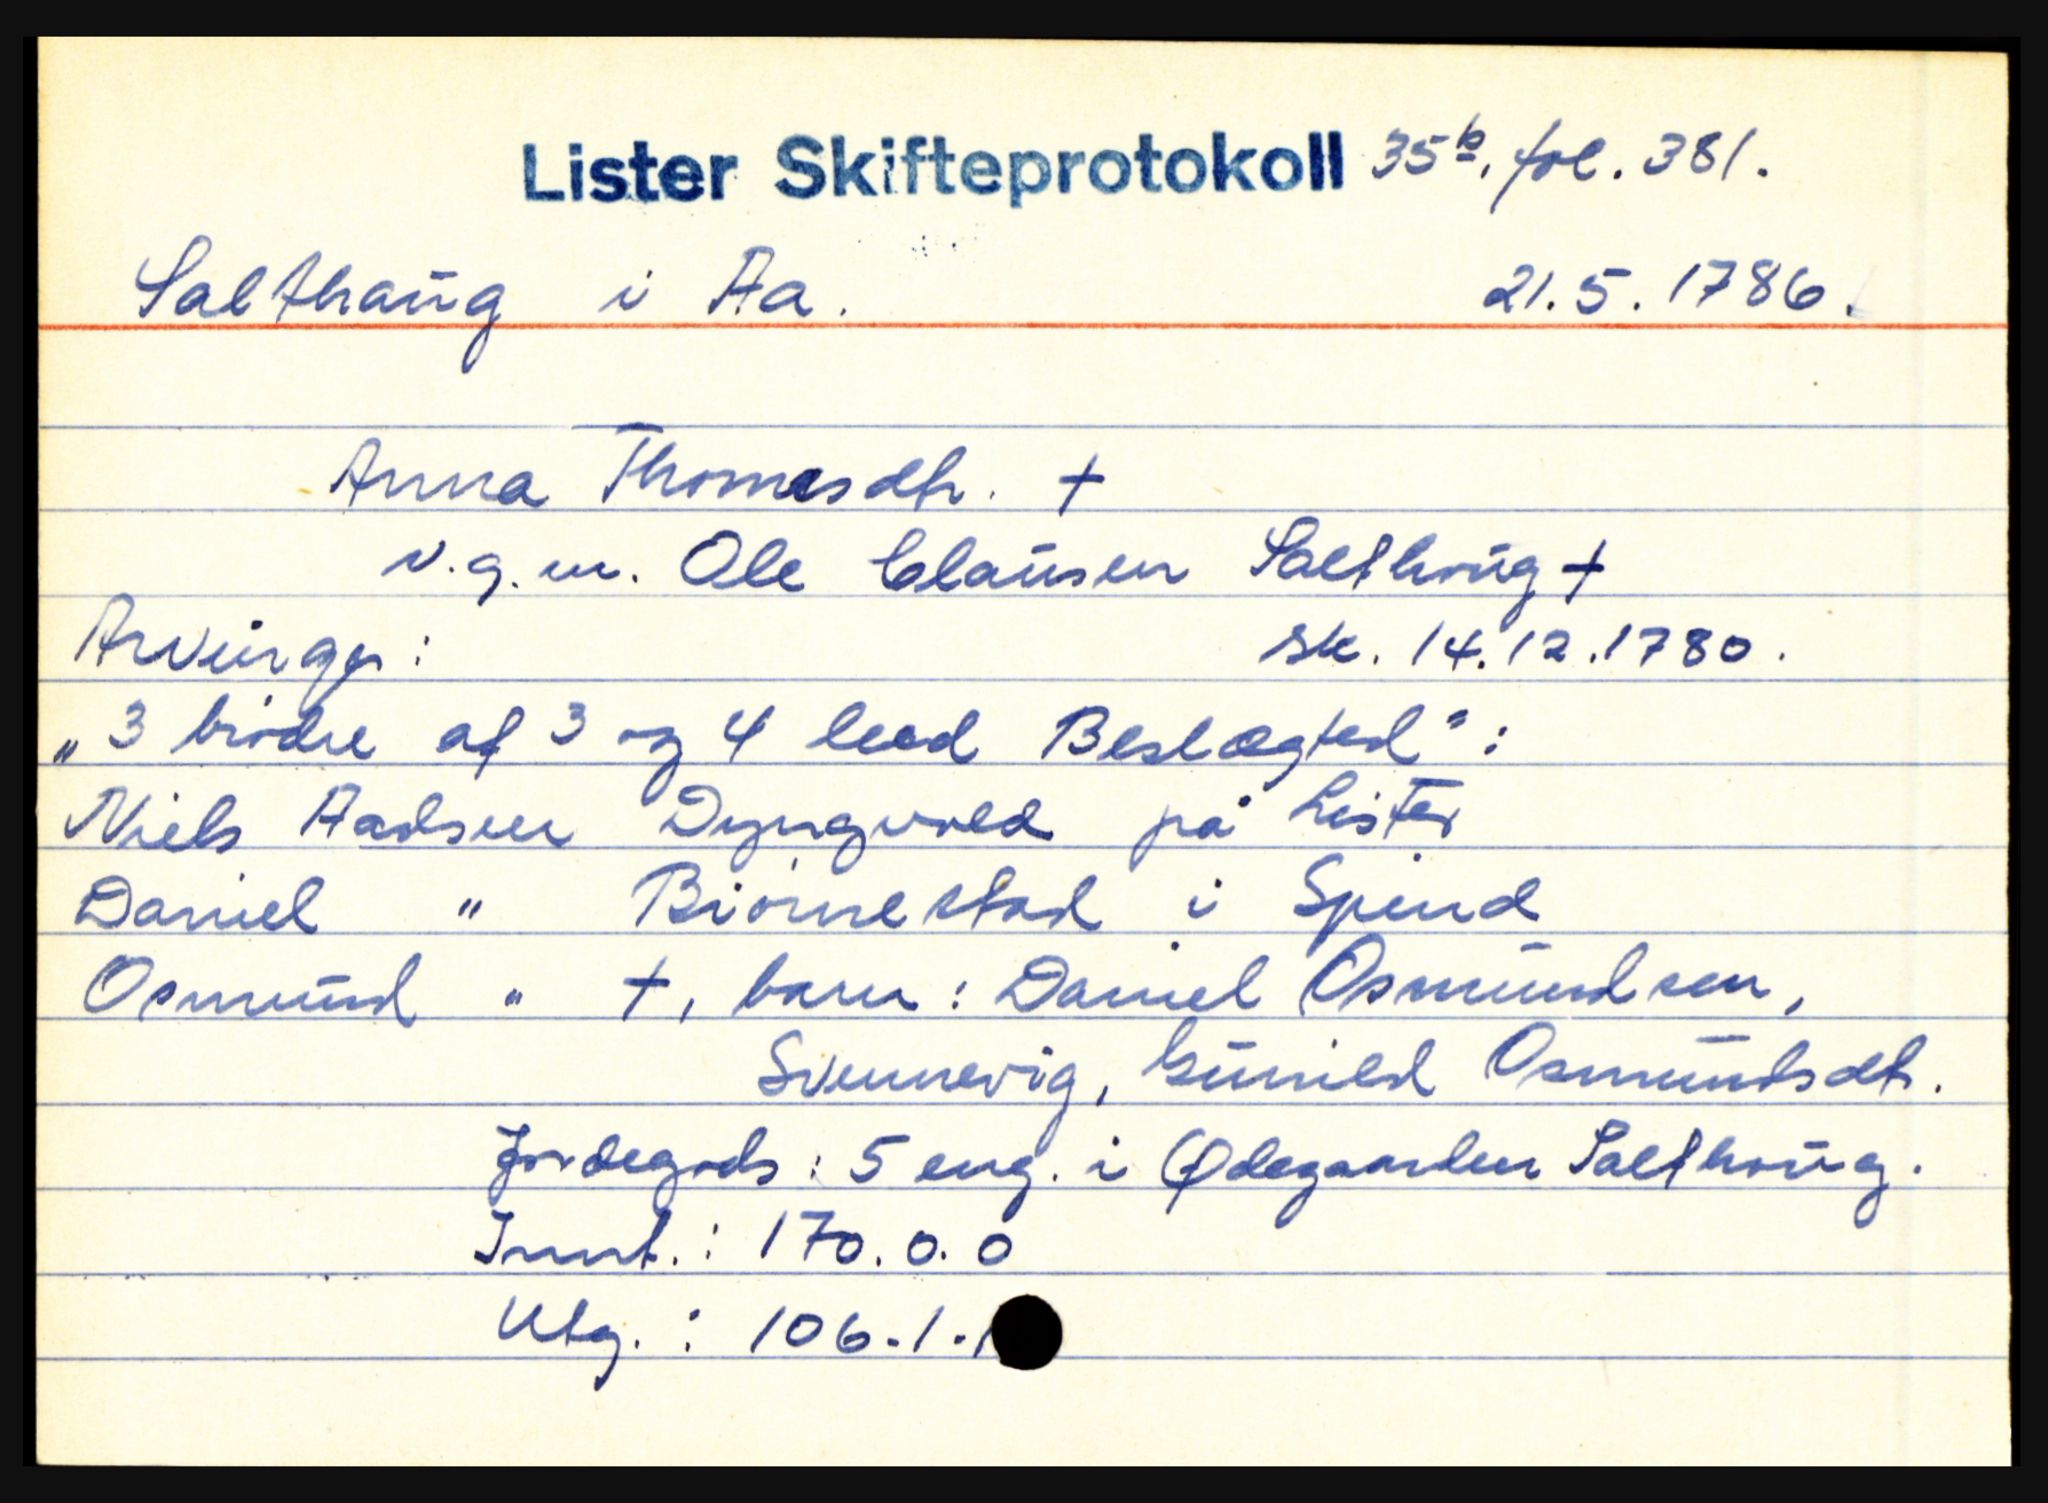 Lister Skifteprotokoll 35b, fol. 381.
Salthaug i Aa. 21.5.1786.
Anna Thomasdtr. †
v.g.m. Ole Clausen Salthoug †
Arvinger: sk. 14.12.1780.
„3 brødre af 3 og 4 leed Beslægted":
Niels Aadsen Dyngvold på Lister
Daniel " Biørnestad i Spind
Osmund " †, barn: Daniel Osmundsen,
Svennevig, Gunild Osmundsdtr.
Jordegods: 5 eng. i Ødegaarden Salthoug.
Innt.: 170.0.0
Utg.: 106.1.1